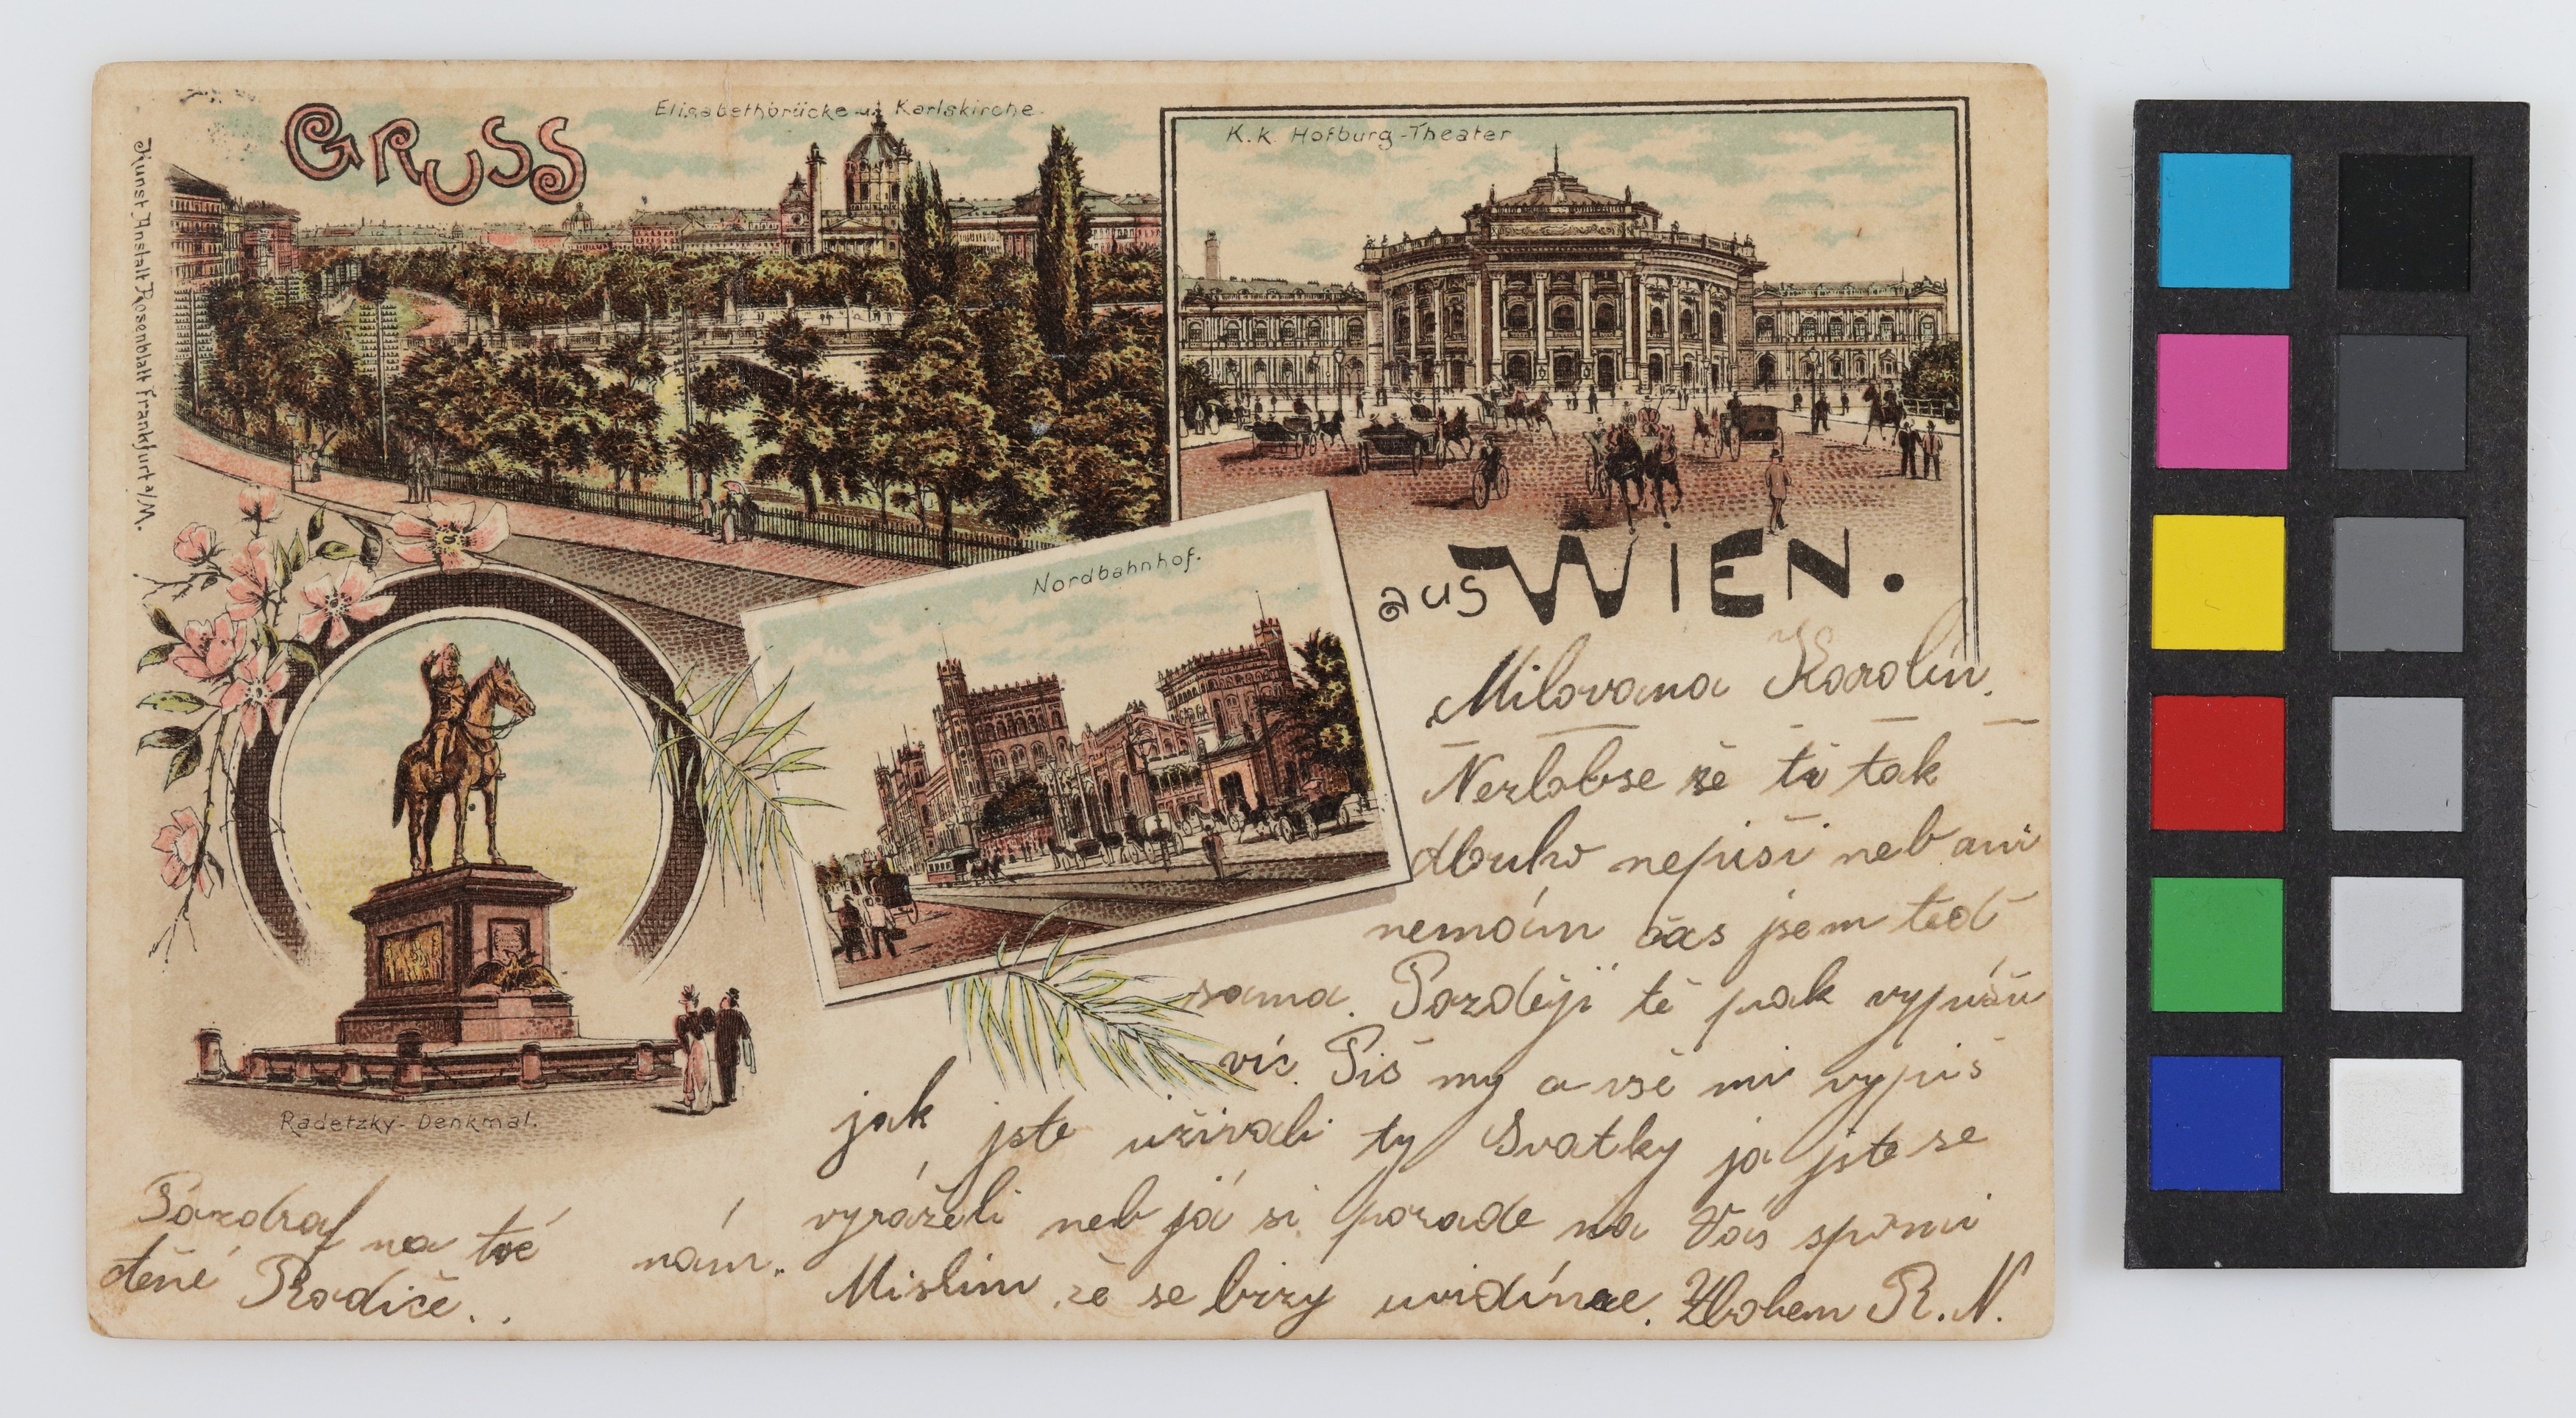 GRUSS
Elisabethbrücke u. Karlskirche.
K. k. Hofburg-Theater
Kunst Anstalt Rosenblatt Frankfurt a/M.
aus WIEN.
Nordbahnhof.
Radetzky-Denkmal.
Milovana Karolin.
Nezlobse že ti tak
dlouho nepiši neb ani
nemám čas jsem teď
sama. Pozdeji tě pak vypíšu
víc. Piš my a vše mi vypiš
jak jste užívali ty Svatky ja jste se
vyráželi neb já si porade na Vás spomi
nám. Mislim že se brzy uvidíme. Zbohem R. N.
Pozdraf na tvé
ctěné Rodiče..